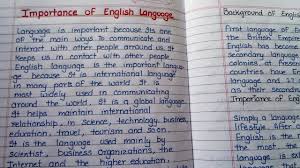 Importance of English Language
Language is important because its one
of the main ways to communicate and
interact with other people around us. It
keeps us in contact with other people
English language is the important langua-
ge because it is international language
in many parts of the world. It is
most widely used in communicating
around the world. It is a global language
It helps maintain international
relationship in Science, technology, business
education, travel, tourism and so on
It is the language used mainly by
Scientist, Business Organizations, the
Internet and in higher education,
Background of English
The British Empire
first language for
English has become
secondary language
colonies at Present
countries have
language and
as their second
Importance of Eng
Simply a language
lifestyle. After
English